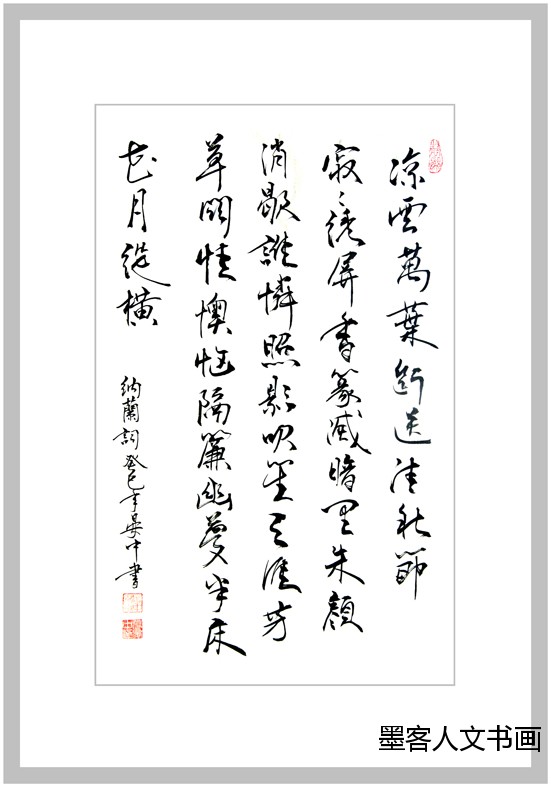 凉雲萬葉断送清秋節
寂〻绣屏香篆滅暗里朱顔
消歇誰憐照影吹笙天涯芳
草関情懊惱隔簾幽夢半床
花月縱橫
納蘭詞癸巳年晏中書
墨客人文书画